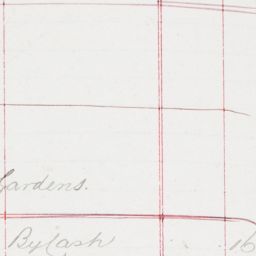 Gardens.
By Cash 16